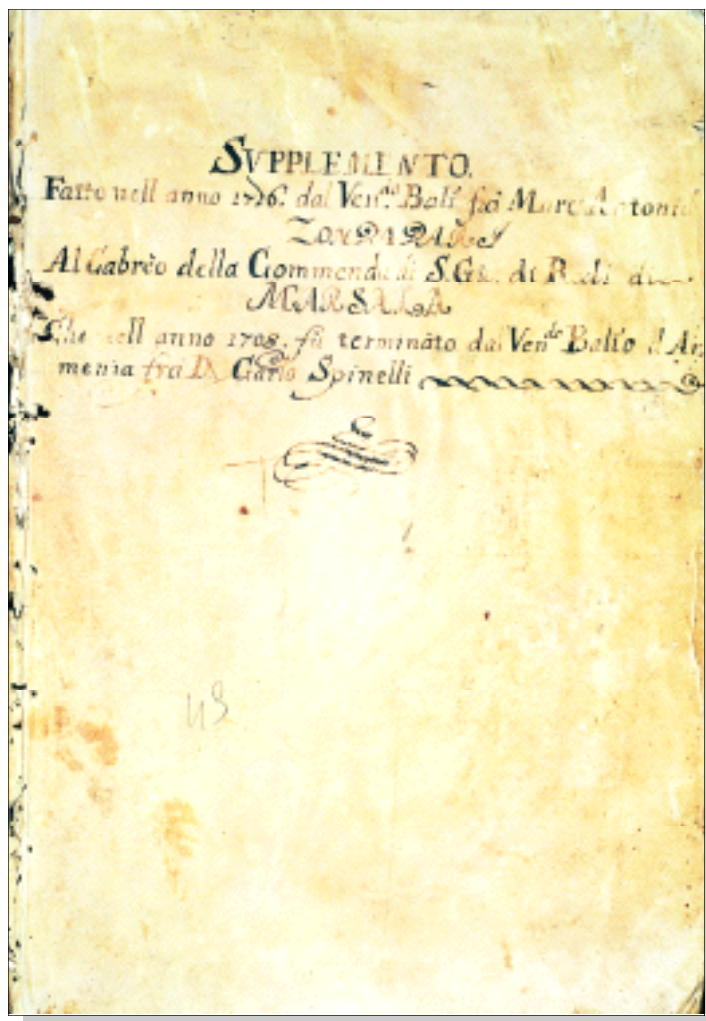 SVPPLEMENTO.
Fatto nell anno 1716. dal Ven.do Balì frà Marc Antonio
ZONDADARI
Al Cabrèo della Commenda di S. Gio. di
MARSALA
Che nell anno 1708. fù terminàto dal Ven.de Balìo d'Ar
menia frà D. Carlo Spinelli